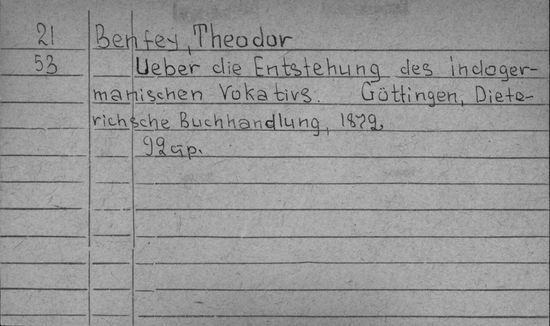 21 Benfey, Theodor
53 Ueber die Entstehung des indoger-
manischen Vokativs. Göttingen, Diete-
richsche Buchhandlung, 1872.
92 a p.